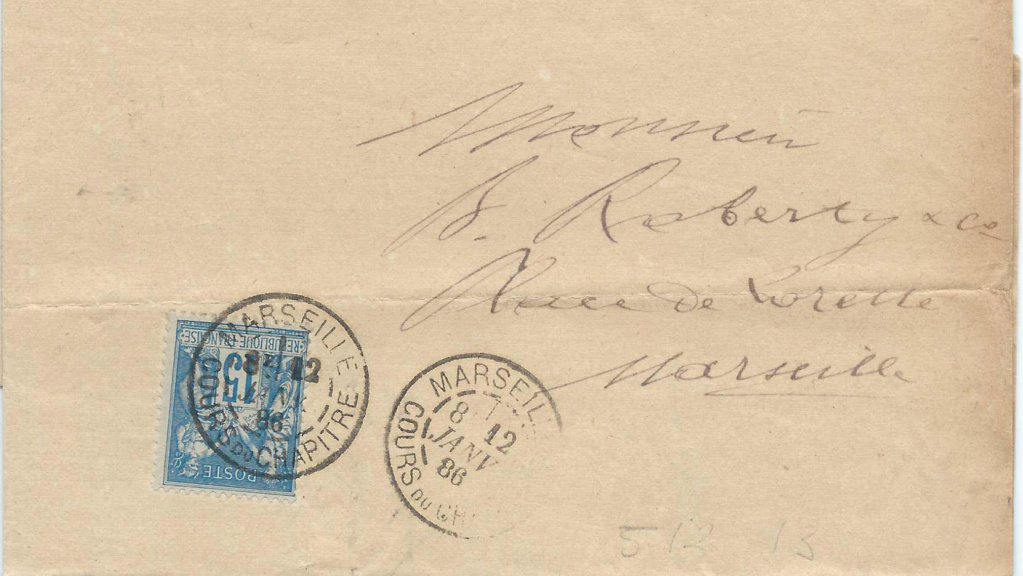 Monsieur
B. Roberty & Co
Place de Lorette
Marseille
MARSEILLE
12
JANV
86
COURS DU CHAPITRE
REPUBLIQUE FRANÇAISE
15
POSTE
MARSEIL
8 12
JANV
86
COURS DU CH